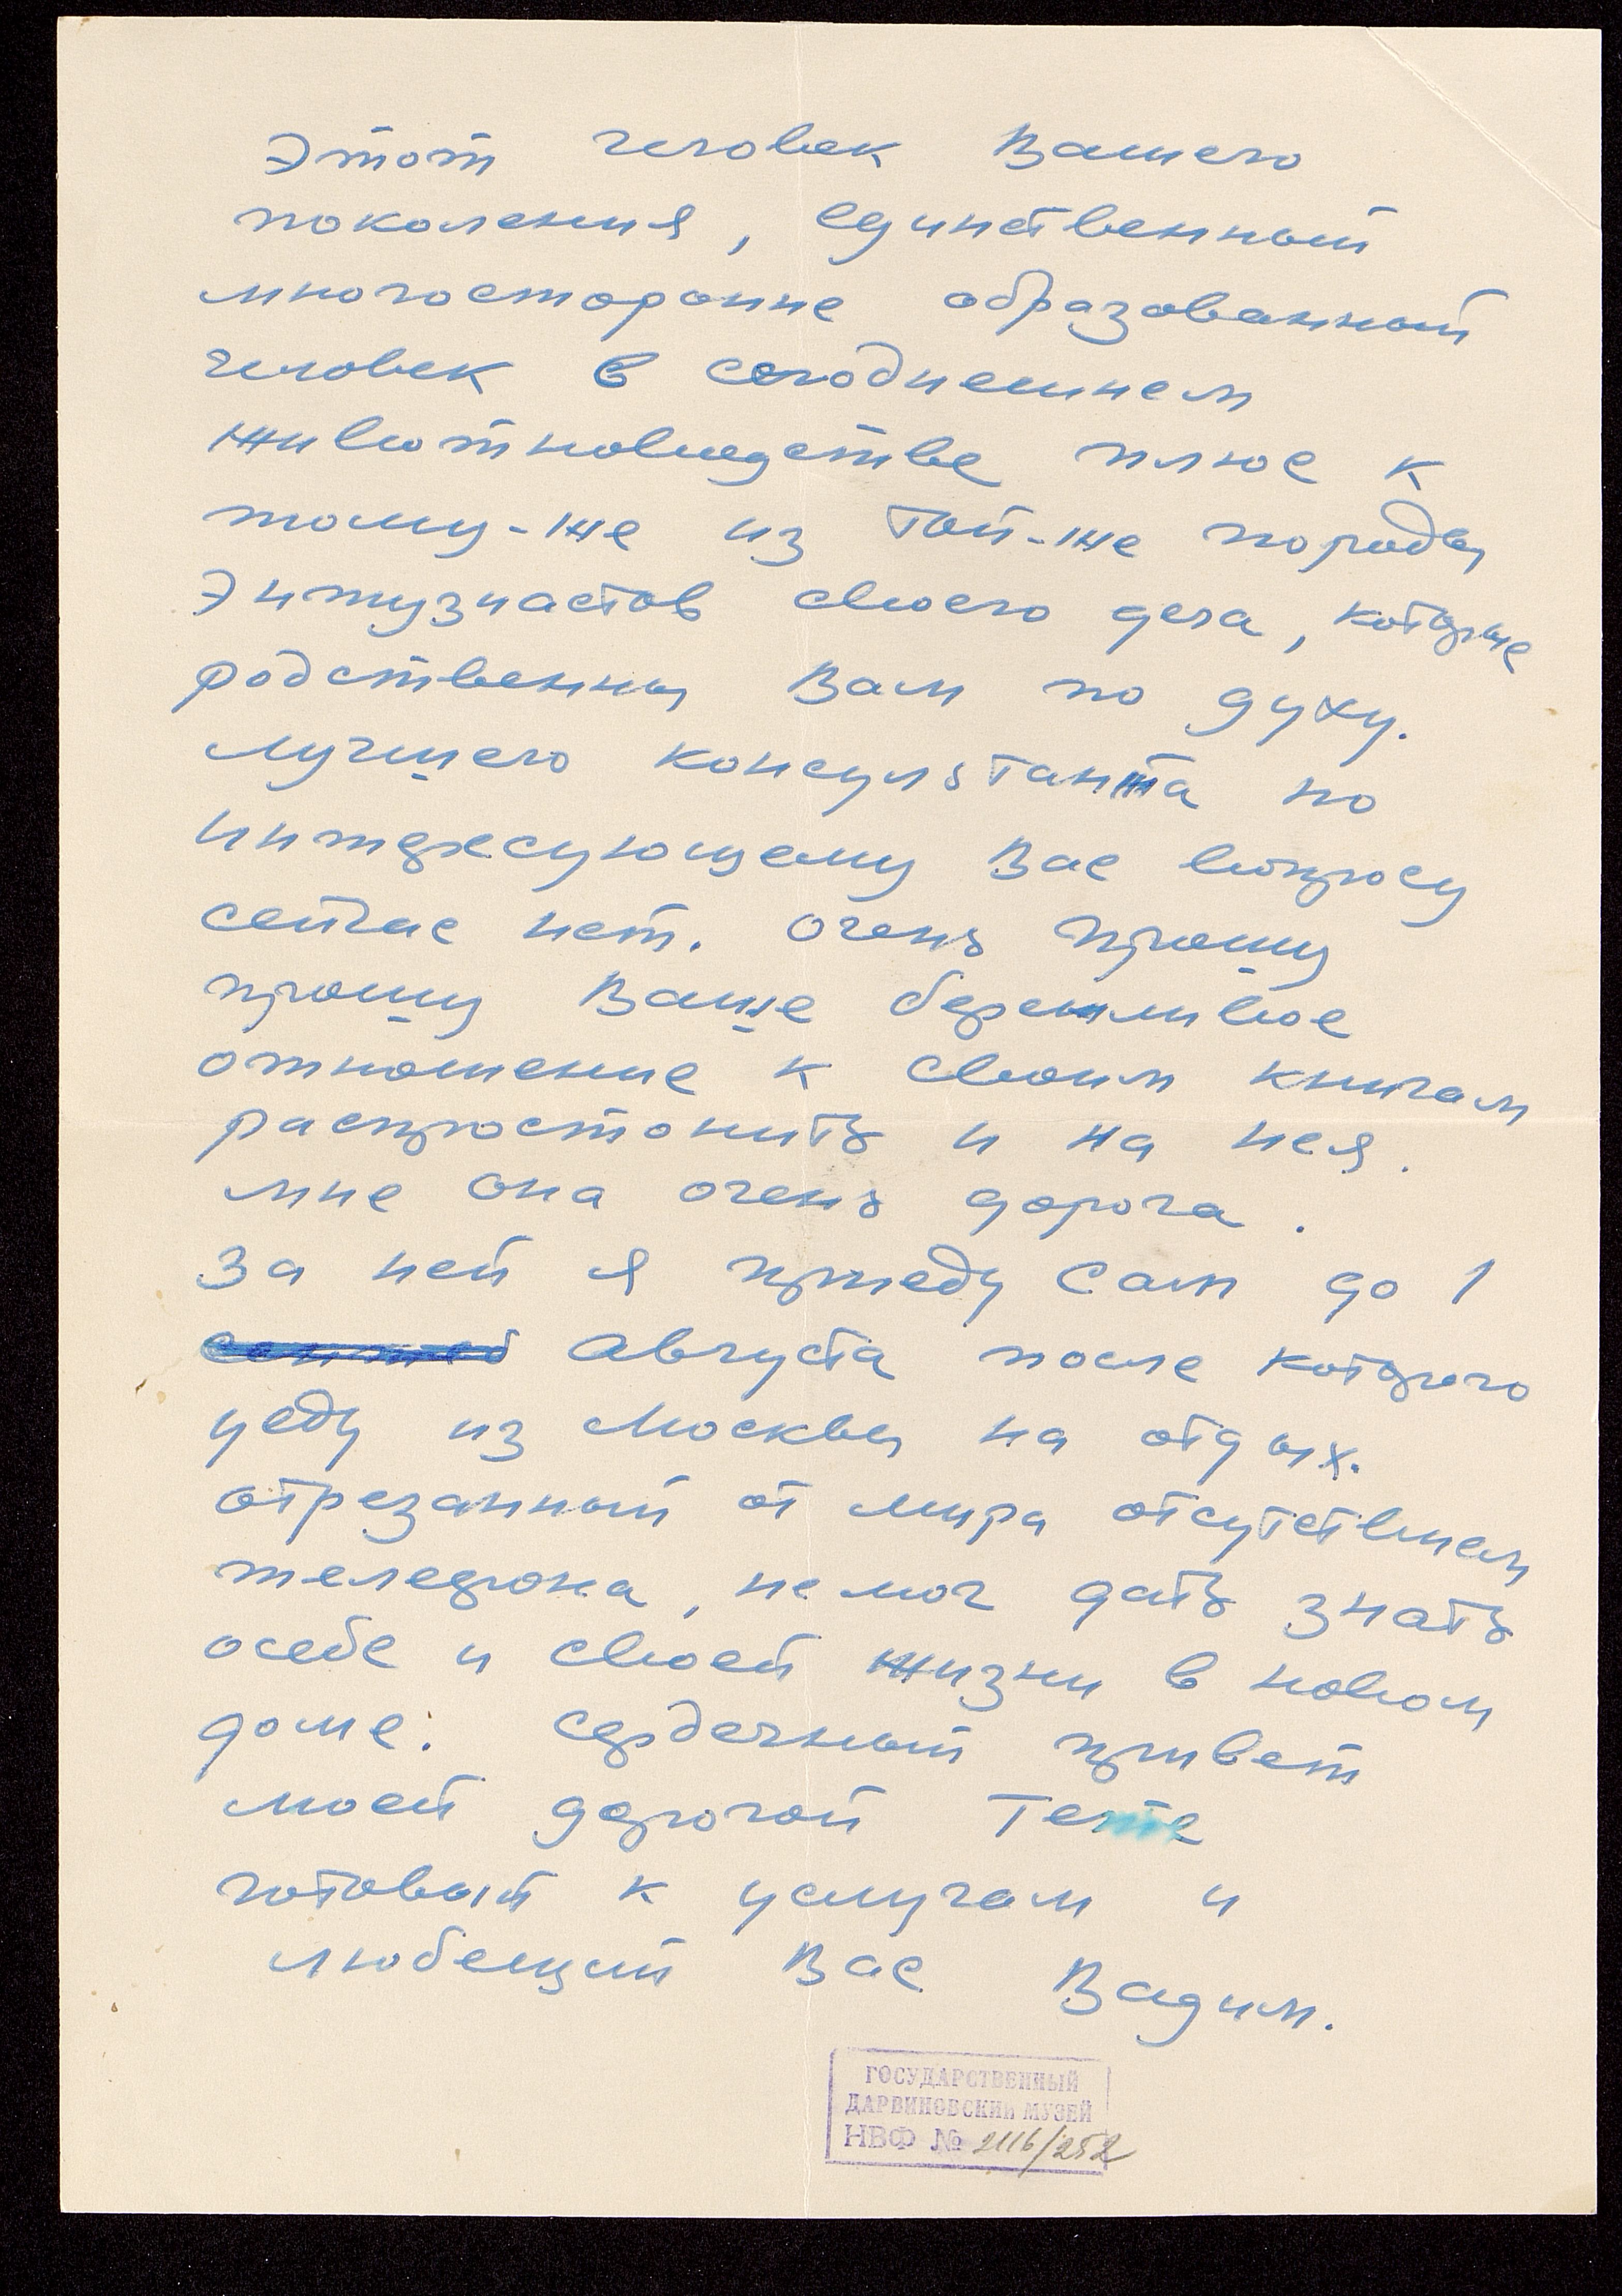 Этот человек Вашего
поколения, единственный
многосторонне образованный
человек в сегоднешнем
животноводстве плюс к
тому-же из той-же породы
энтузиастов своего дела, которые
родственны Вам по духу.
лучшего консультанта по
интересующему Вас вопросу
сейчас нет. очень прошу
прошу Ваше бережливое
отношение к своим книгам
распростонить и на нея.
мне она очень дорога.
За ней я приеду сам до 1
Августа после которого
уеду из Москвы на отдых.
отрезанный от мира отсутствием
телефона, не мог дать знать
осебе и своей жизни в новом
доме. Сердечный привет
моей дорогой Тете
готовый к услугам и
любещий Вас Вадим.
ГОСУДАРСТВЕННЫЙ
ДАРВИНОВСКИЙ МУЗЕЙ
НВФ № 2116/252